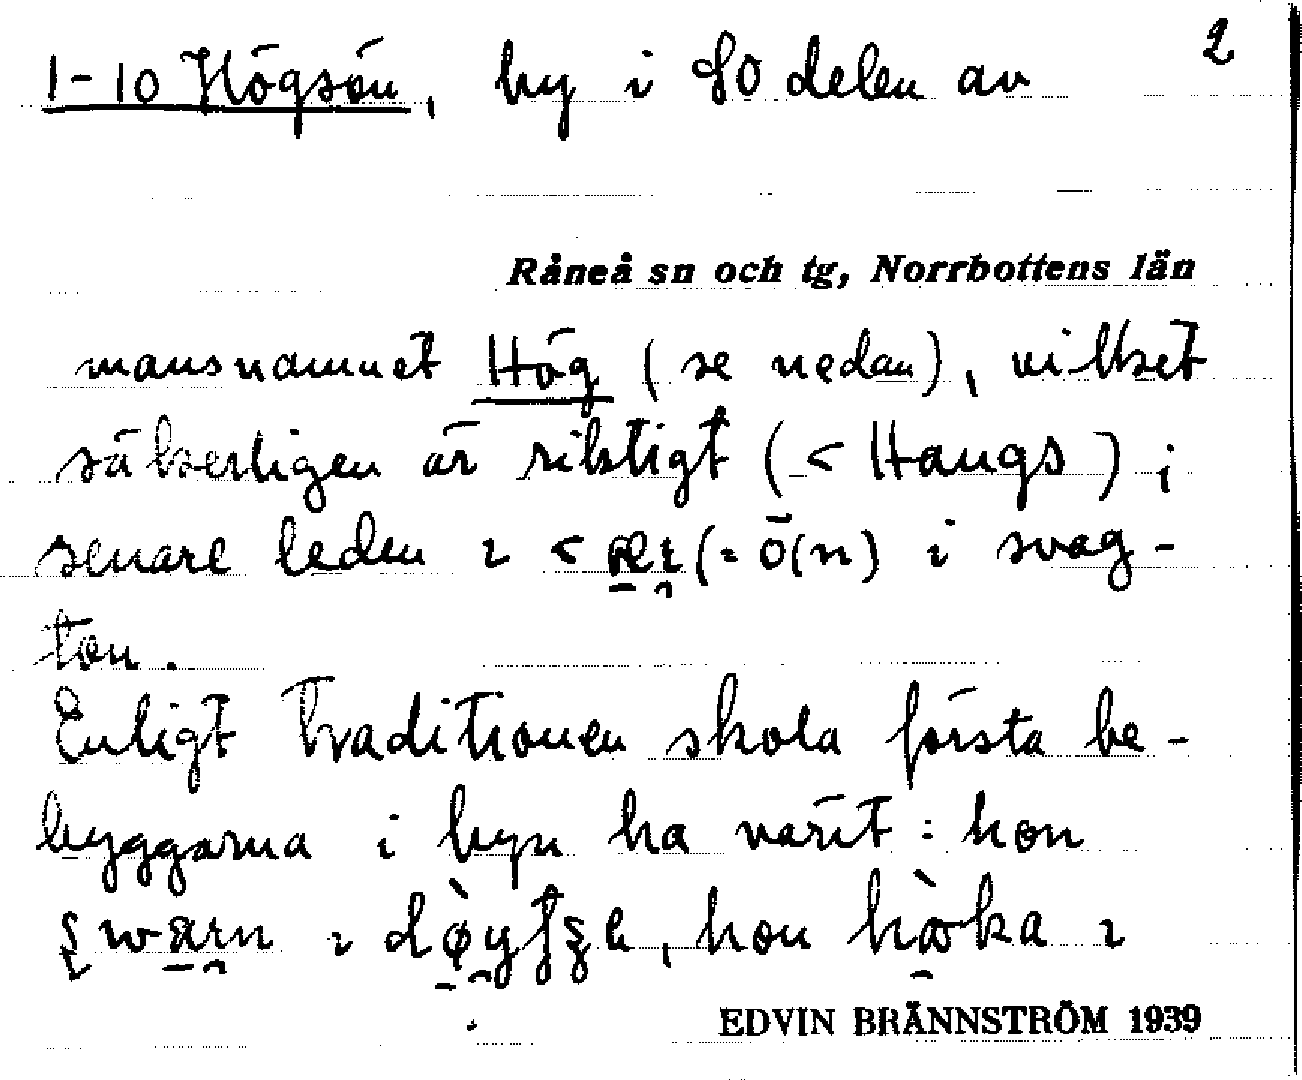 2
1-10 Högsön, by i SO delen av
Råneå sn och tg, Norrbottens län
mansnamnet Hög (se nedan), vilket
säkerligen är riktigt (< Haugs) i
senare leden ɩ < æɩ (= ö(n) i svag-
ton.
Enligt traditionen skola första be-
byggarna i byn ha varit: hon
EDVIN BRÄNNSTRÖM 1939